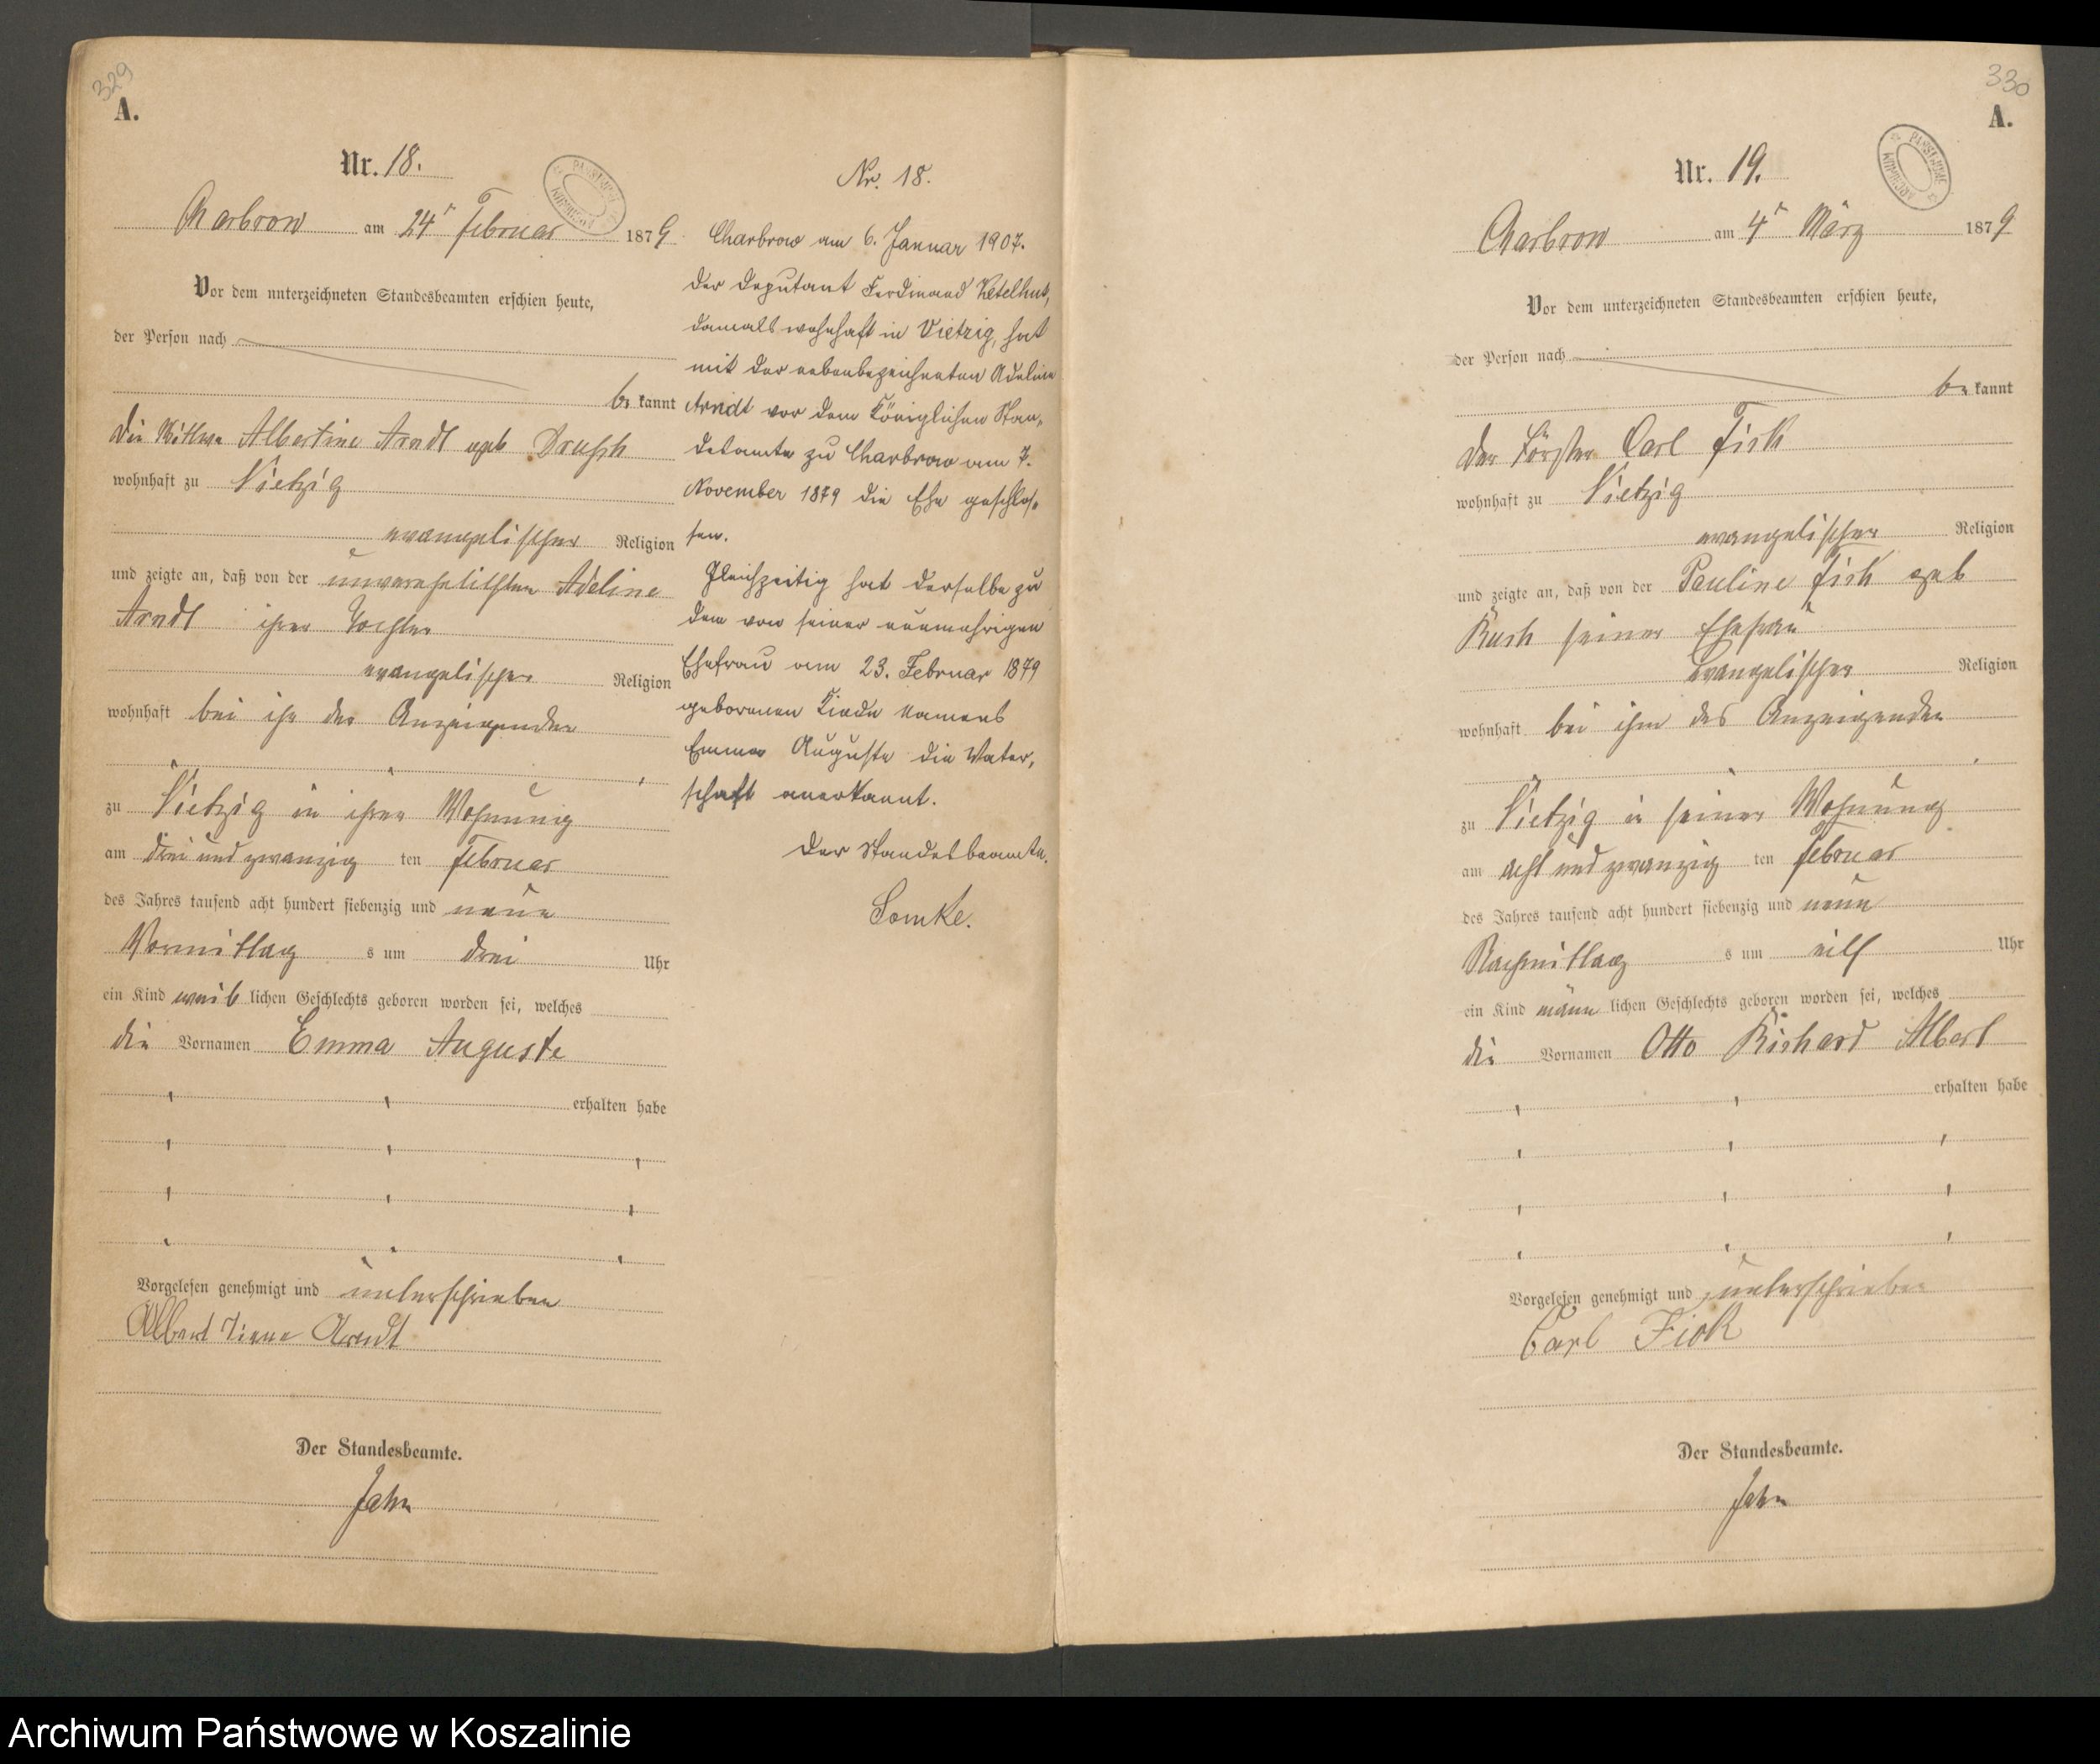 329
A.
Nr. 18.
Charbrow am 24t Februar 1879
Vor dem unterzeichneten Standesbeamten erschien heute,
der Person nach
be kannt
die Wittwe Albertine Arndt geb
wohnhaft zu Vietzig
evangelischer Religion
und zeigte an, daß von der unverehelichten Adeline
Arndt ihrer Tochter
evangelischer Religion
wohnhaft bei ihr der Anzeigenden
zu Vietzig in ihrer Wohnung
am drei und zwanzig ten Februar
des Jahres tausend acht hundert siebenzig und neun
Vormittag s um drei Uhr
ein Kind weib lichen Geschlechts geboren worden sei, welches
die Vornamen Emma Auguste
erhalten habe
Vorgelesen genehmigt und unterschrieben
Albertiene Arndt
Der Standesbeamte.
Jahn
Nr. 18.
Charbrow am 6. Januar 1907.
Der Deputant Ferdinand Ketelhut,
damals wohnhaft in Vietzig, hat
mit der nebenbezeichneten Adeline
Arndt vor dem Königlichen Stan-
desamte zu Charbrow am 7.
November 1879 die Ehe geschlos-
sen.
Gleichzeitig hat derselbe zu
dem von seiner nunmehrigen
Ehefrau am 23. Februar 1879
geborenen Kinde namens
Emma Auguste die Vater-
schaft anerkannt.
Der Standesbeamte.
Lomke.
330
A.
ARCHIWUM PAŃSTWOWE
Nr. 19.
Charbrow am 4t März 1879
Vor dem unterzeichneten Standesbeamten erschien heute,
der Person nach
be kannt
der Förster Carl Fick
wohnhaft zu Vietzig
evangelischer Religion
und zeigte an, daß von der Pauline Fick geb
seiner Ehefrau
evangelischer Religion
wohnhaft bei ihm des Anzeigenden
zu Vietzig in seiner Wohnung
am acht und zwanzig ten Februar
des Jahres tausend acht hundert siebenzig und neun
Nachmittag s um eilf Uhr
ein Kind männ lichen Geschlechts geboren worden sei, welches
die Vornamen Otto Richard Albert
erhalten habe
Vorgelesen genehmigt und unterschrieben
Carl Fick
Der Standesbeamte.
Jahn
Archiwum Państwowe w Koszalinie